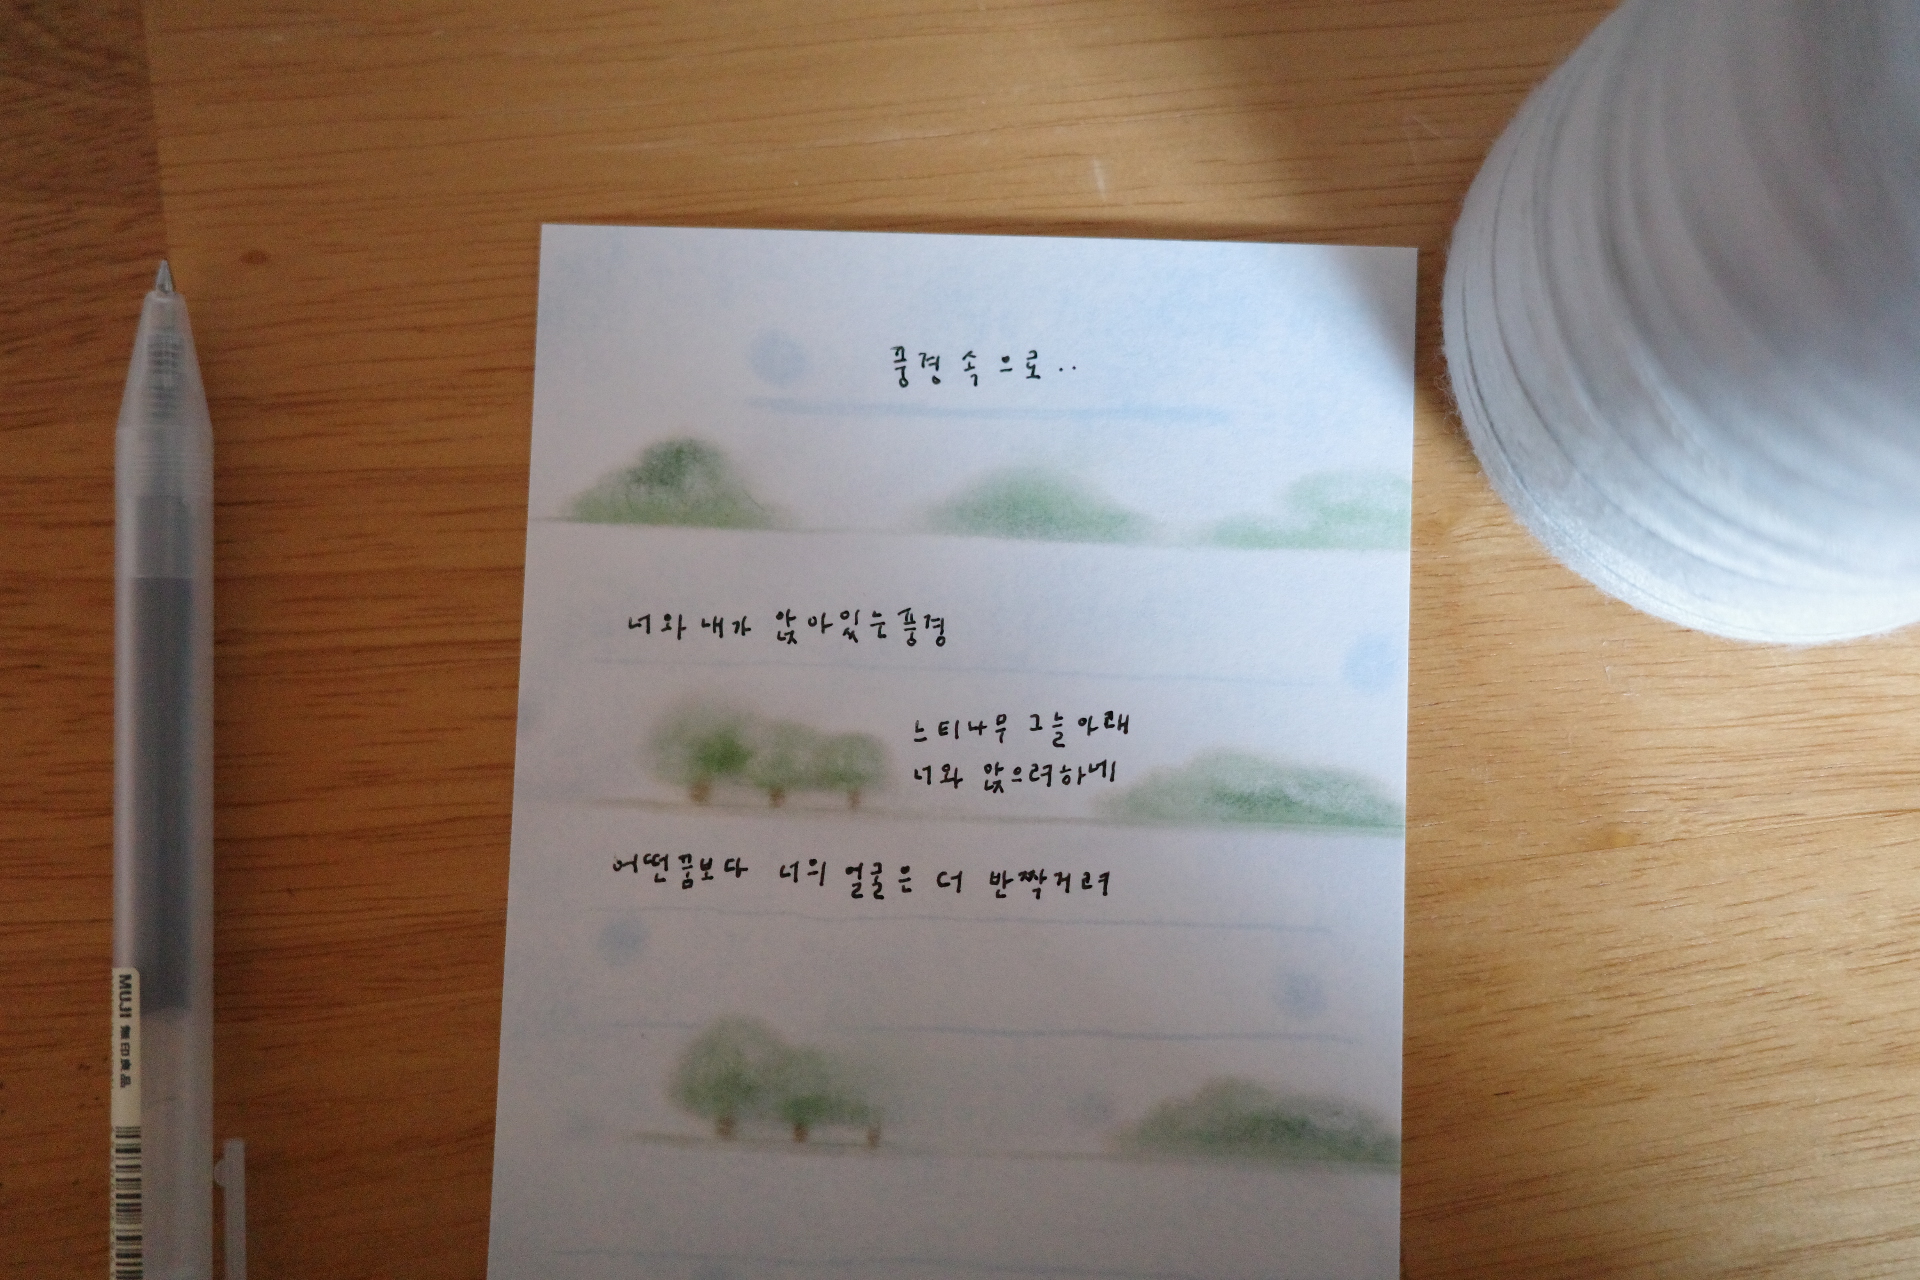 풍경 속으로..
너와 내가 앉아있는 풍경
느티나무 그늘 아래
너와 앉으려하네
어떤 꿈보다 너의 얼굴은 더 반짝거려
MUJI 無印良品